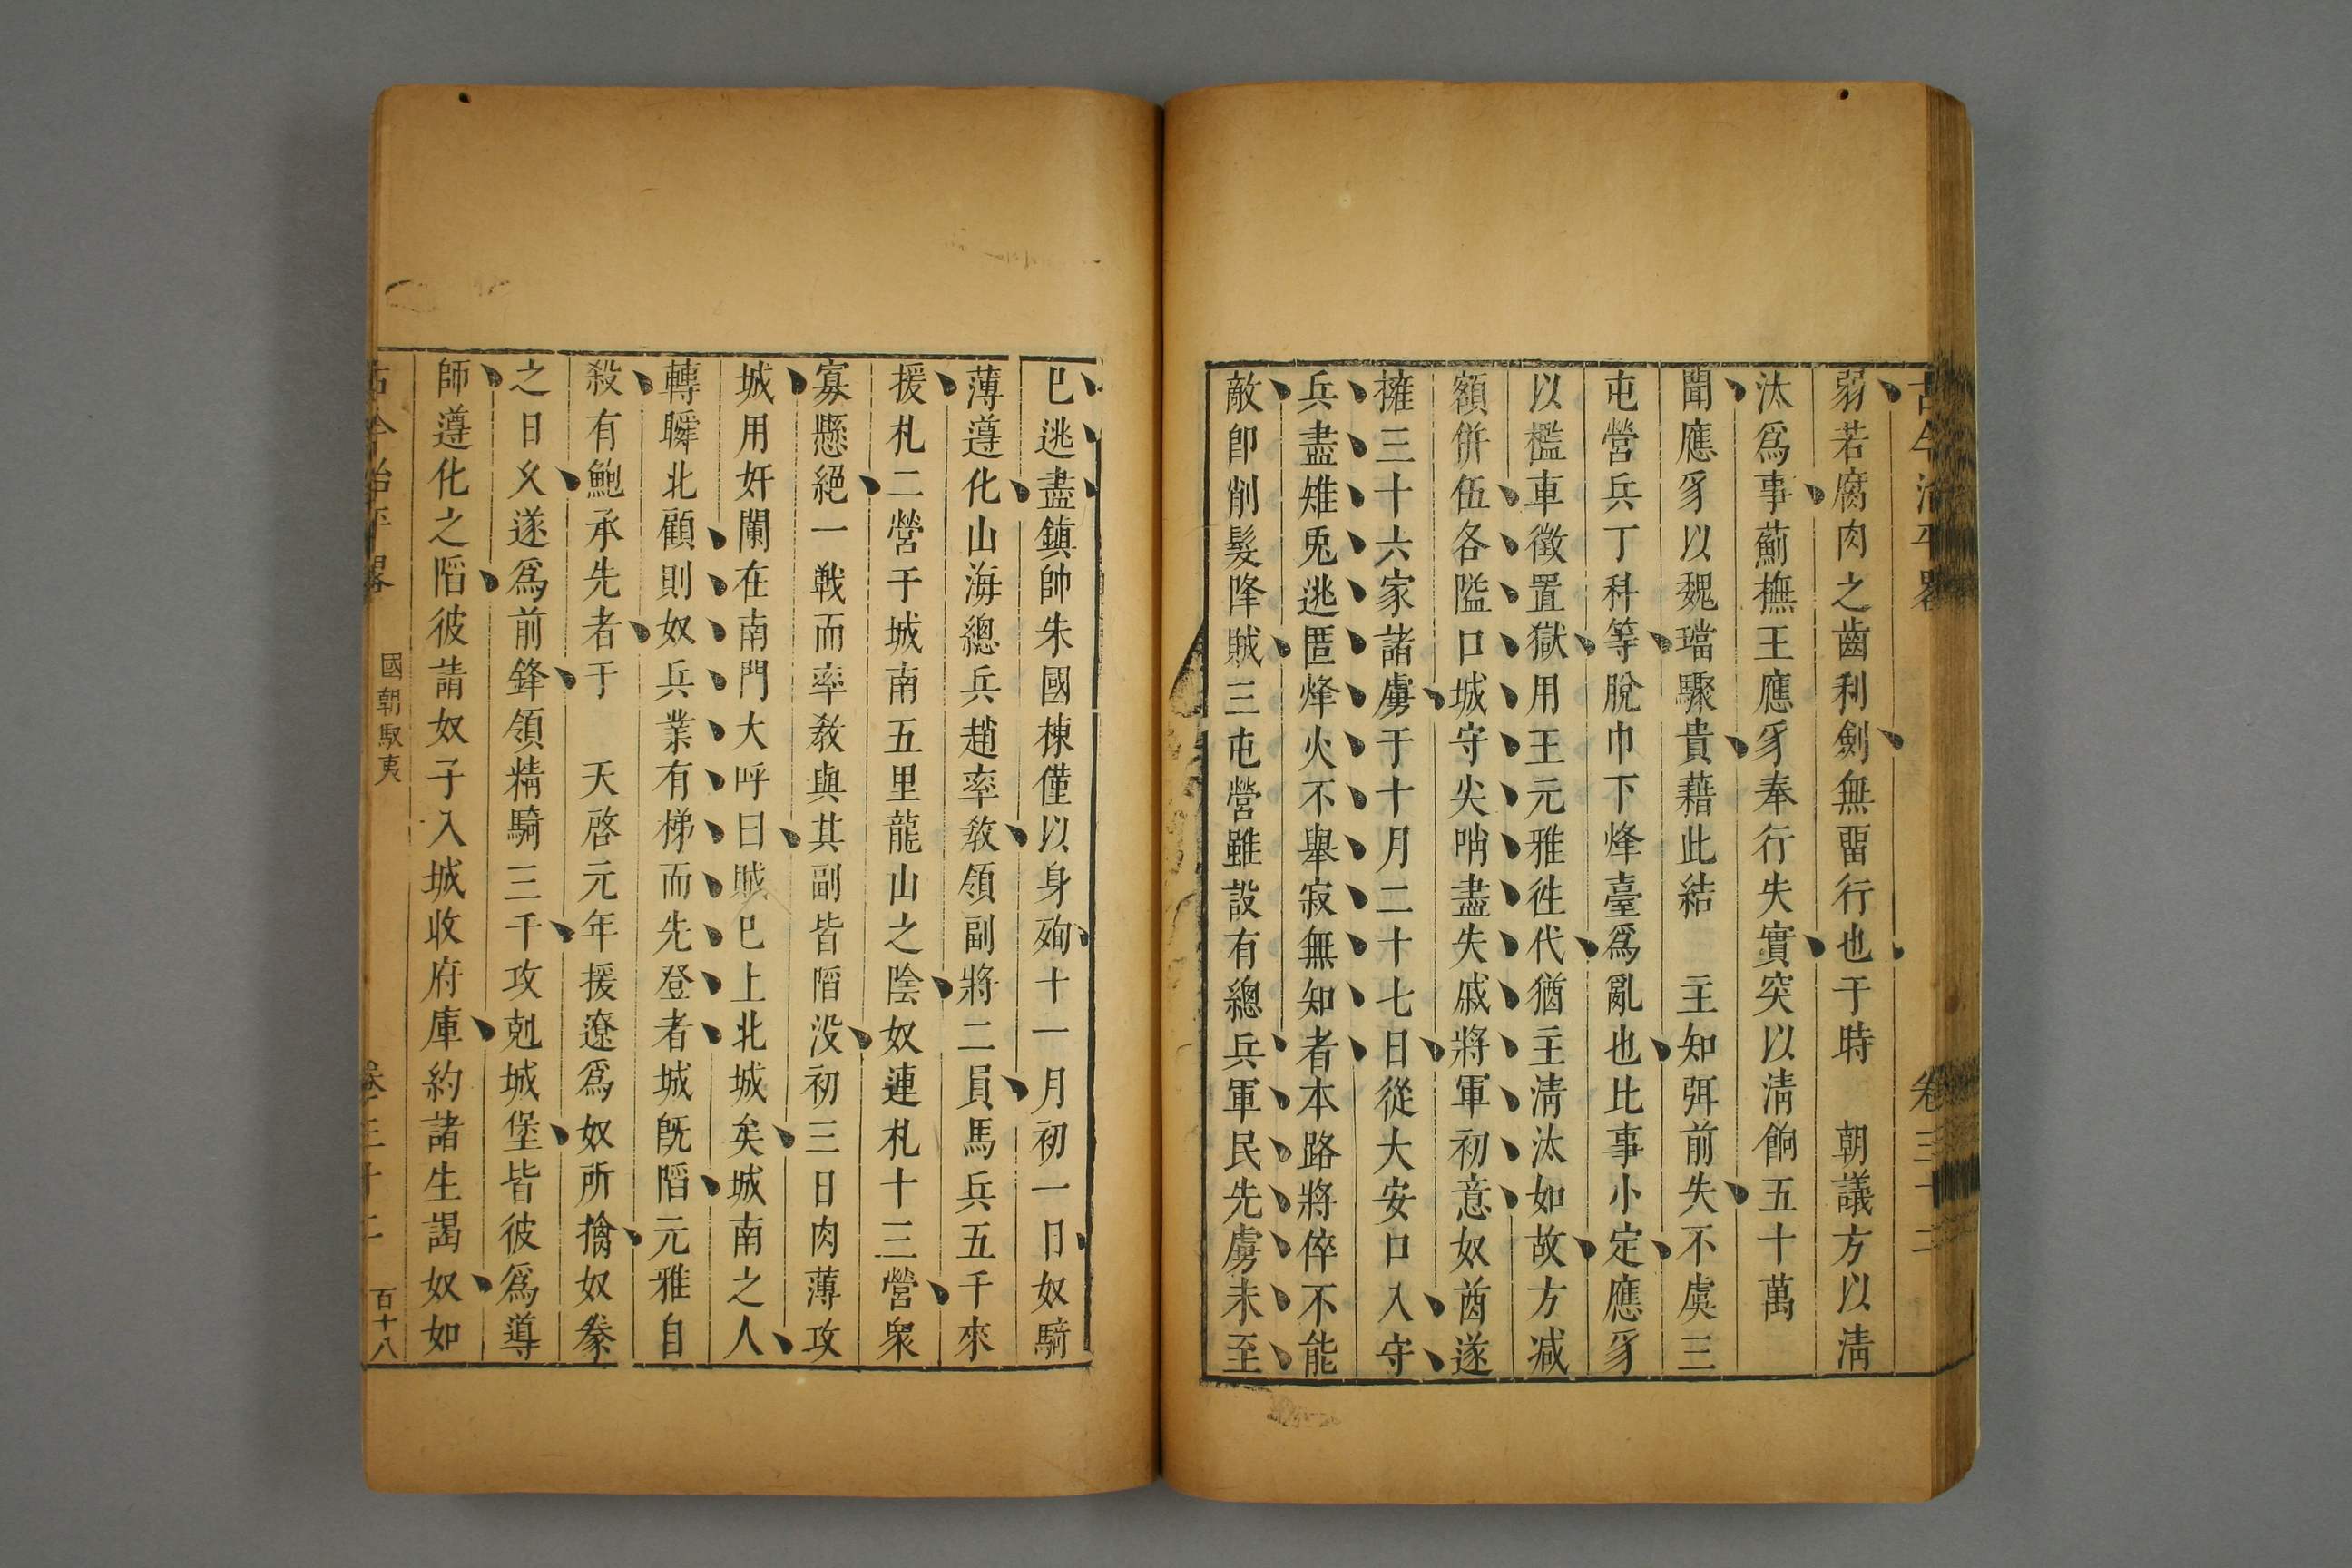 古今治平畧 卷三十二
弱若腐肉之齒利劍無畱行也于時 朝議方以清
汰爲事薊撫王應豸奉行失實突以清餉五十萬
聞應豸以魏璫驟貴藉此結 主知弭前失不虞三
屯營兵丁科等脫巾下烽臺爲亂也比事小定應豸
以檻車徵置獄用王元雅徃代猶主清汰如故方减
額併伍各隘口城守尖哨盡失戚將軍初意奴酋遂
擁三十六家諸虜于十月二十七日從大安口入守
兵盡雉兎逃匿烽火不舉寂無知者本路將倅不能
敵卽削髮降賊三屯營雖設有總兵軍民先虜未至
已逃盡鎮帥朱國棟僅以身殉十一月初一日奴騎
薄遵化山海總兵趙率教領副將二員馬兵五千來
援札二營于城南五里龍山之陰奴連札十三營衆
寡懸絕一戰而率教與其副皆䧟没初三日肉薄攻
城用奸闌在南門大呼曰賊已上北城矣城南之人
轉瞬北顧則奴兵業有梯而先登者城旣䧟元雅自
殺有鮑承先者于 天啓元年援遼爲奴所擒奴豢
之日久遂爲前鋒領精騎三千攻剋城堡皆彼爲導
師遵化之䧟彼請奴子入城收府庫約諸生謁奴如
古今治平畧 國朝馭夷 卷三十二 百十八